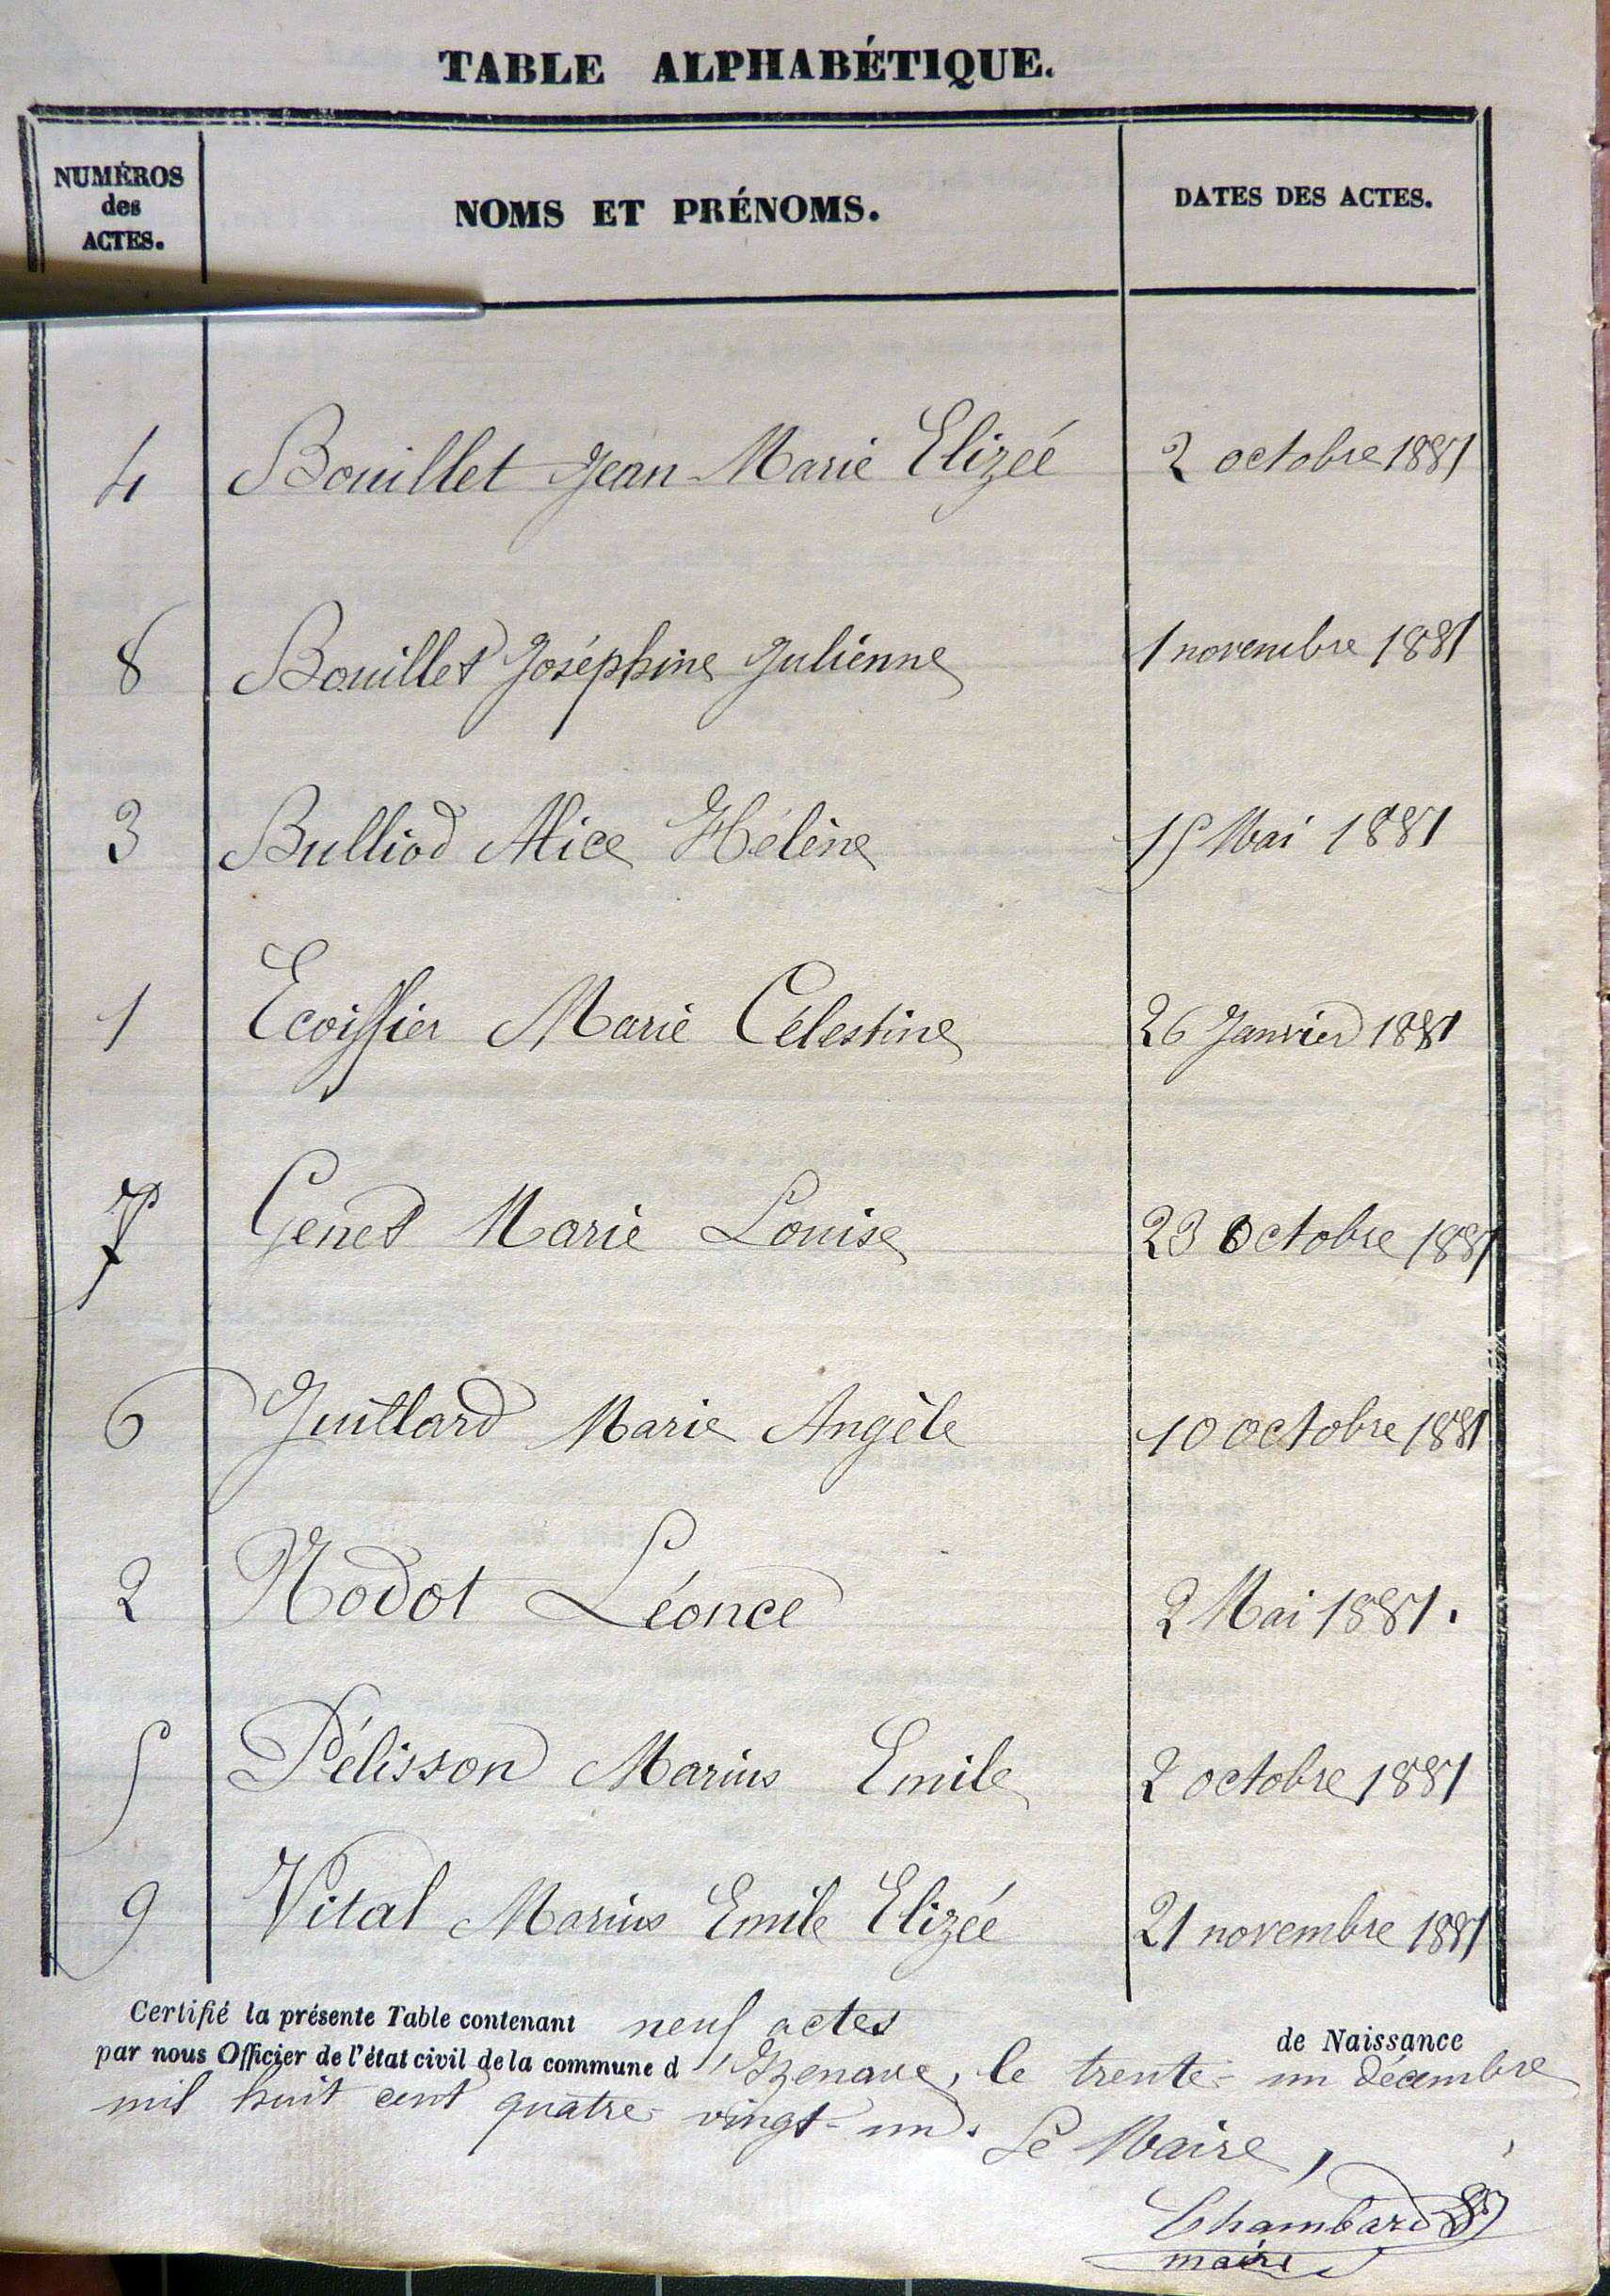 TABLE ALPHABÉTIQUE.
NUMÉROS
des
ACTES.
NOMS ET PRÉNOMS.
DATES DES ACTES.
4 Bouillet Jean Marie Elizée 2 octobre 1881
8 Bouillet Joséphine Julienne 1 novembre 1881
3 Bulliod Alice Hélène 15 Mai 1881
1 Ecoiffier Marie Célestine 26 Janvier 1881
7 Genet Marie Louise 23 Octobre 1881
6 Juillard Marie Angèle 10 octobre 1881
2 Nodot Léonce 2 Mai 1881.
5 Pélisson Marius Emile 2 octobre 1881
9 Vital Marius Emile Elizée 21 novembre 1881
Certifié la présente Table contenant neuf actes de Naissance
par nous Officier de l'état civil de la commune d'Izenave, le trente-un décembre
mil huit cent quatre-vingt-un.
Le Maire,
Chambard
maire